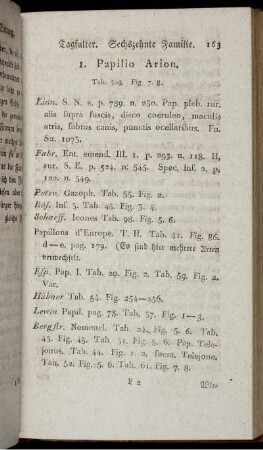 Tagfalter. Sechszehnte Familie. 163
1. Papilio Arion.
Tab. 309. Fig. 7. 8.
Linn. S. N. 2. p. 789. n. 230. Pap. pleb. rur.
alis supra fuscis, disco coeruleo, maculis
atris, subtus canis, punctis ocellaribus. Fn.
Su. 1073.
Fabr. Ent. emend. III. 1. p. 293. n. 118. II,
rur. S. E. p. 524. n: 545. Spec. inf. 2. p,
122. n. 549.
Petiv. Gazoph. Tab. 55. Fig. 2.
Rös. Inf. 3. Tab. 45. Fig. 3. 4.
Schaeff. Icones Tab. 98. Fig. 5. 6.
Papillons d'Europe. T. II. Tab. 41. Fig. 86.
d—e. pag. 179. (Es sind hier mehrere Arten
verwechselt.
Esp. Pap. I. Tab. 20. Fig. 2. Tab. 59. Fig. 2.
Var.
Hübner Tab. 54. Fig. 254—256.
Lewin Papil. pag. 78. Tab. 37. Fig. 1—3.
Bergstr. Nomencl. Tab. 24. Fig. 5. 6. Tab.
43. Fig. 45. Tab. 51. Fig. 5. 6. Pap. Tele-
jonus. Tab. 44. Fig. 1. 2. foem. Telejone.
Tab. 52. Fig. 5. 6. Tab. 61. Fig. 7. 8.
L 2